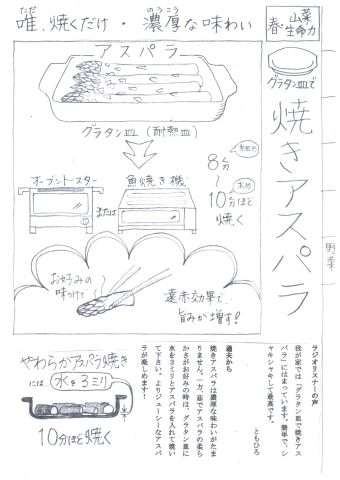 唯、焼くだけ・濃厚な味わい
ただ
のうこう
春・山菜
生命力
グラタン皿で
焼きアスパラ
野菜
アスパラ
グラタン皿(耐熱皿)
8分
細め
〜
太め
10分ほど
焼く
オーブントースター
または
魚焼き機
お好みの
味つけで
遠赤効果で
旨みが増す!
やわらかアスパラ焼き
には
水を3ミリ
水
10分ほど焼く
ラジオリスナーの声
我が家では「グラタン皿で焼きアス
パラ」にはまっています。簡単で、シ
ャキシャキして最高です。
ともひろ
達夫から
焼きアスパラは濃厚な味わいがたま
りません。一方、茹でアスパラの柔ら
かさがお好みの時は、グラタン皿に
水を3ミリとアスパラを入れて焼い
て下さい。よりジューシーなアスパ
ラが楽しめます!